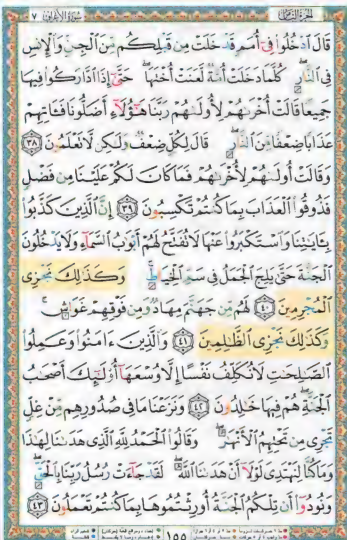 الجزء الثامن سورة الأعراف ٧
قَالَ ٱدْخُلُوا۟ فِىٓ أُمَمٍ قَدْ خَلَتْ مِن قَبْلِكُم مِّنَ ٱلْجِنِّ وَٱلْإِنسِ
فِى ٱلنَّارِ كُلَّمَا دَخَلَتْ أُمَّةٌ لَّعَنَتْ أُخْتَهَا حَتَّىٰٓ إِذَا ٱدَّارَكُوا۟ فِيهَا
جَمِيعًا قَالَتْ أُخْرَىٰهُمْ لِأُولَىٰهُمْ رَبَّنَا هَٰٓؤُلَآءِ أَضَلُّونَا فَـَٔاتِهِمْ
عَذَابًا ضِعْفًا مِّنَ ٱلنَّارِ قَالَ لِكُلٍّ ضِعْفٌ وَلَٰكِن لَّا تَعْلَمُونَ ٣٨
وَقَالَتْ أُولَىٰهُمْ لِأُخْرَىٰهُمْ فَمَا كَانَ لَكُمْ عَلَيْنَا مِن فَضْلٍ
فَذُوقُوا۟ ٱلْعَذَابَ بِمَا كُنتُمْ تَكْسِبُونَ ٣٩ إِنَّ ٱلَّذِينَ كَذَّبُوا۟
بِـَٔايَٰتِنَا وَٱسْتَكْبَرُوا۟ عَنْهَا لَا تُفَتَّحُ لَهُمْ أَبْوَٰبُ ٱلسَّمَآءِ وَلَا يَدْخُلُونَ
ٱلْجَنَّةَ حَتَّىٰ يَلِجَ ٱلْجَمَلُ فِى سَمِّ ٱلْخِيَاطِ وَكَذَٰلِكَ نَجْزِى
ٱلْمُجْرِمِينَ ٤٠ لَهُم مِّن جَهَنَّمَ مِهَادٌ وَمِن فَوْقِهِمْ غَوَاشٍ
وَكَذَٰلِكَ نَجْزِى ٱلظَّٰلِمِينَ ٤١ وَٱلَّذِينَ ءَامَنُوا۟ وَعَمِلُوا۟
ٱلصَّٰلِحَٰتِ لَا نُكَلِّفُ نَفْسًا إِلَّا وُسْعَهَآ أُو۟لَٰٓئِكَ أَصْحَٰبُ
ٱلْجَنَّةِ هُمْ فِيهَا خَٰلِدُونَ ٤٢ وَنَزَعْنَا مَا فِى صُدُورِهِم مِّنْ غِلٍّ
تَجْرِى مِن تَحْتِهِمُ ٱلْأَنْهَٰرُ وَقَالُوا۟ ٱلْحَمْدُ لِلَّهِ ٱلَّذِى هَدَىٰنَا لِهَٰذَا
وَمَا كُنَّا لِنَهْتَدِىَ لَوْلَآ أَنْ هَدَىٰنَا ٱللَّهُ لَقَدْ جَآءَتْ رُسُلُ رَبِّنَا بِٱلْحَقِّ
وَنُودُوٓا۟ أَن تِلْكُمُ ٱلْجَنَّةُ أُورِثْتُمُوهَا بِمَا كُنتُمْ تَعْمَلُونَ ٤٣
١٥٥